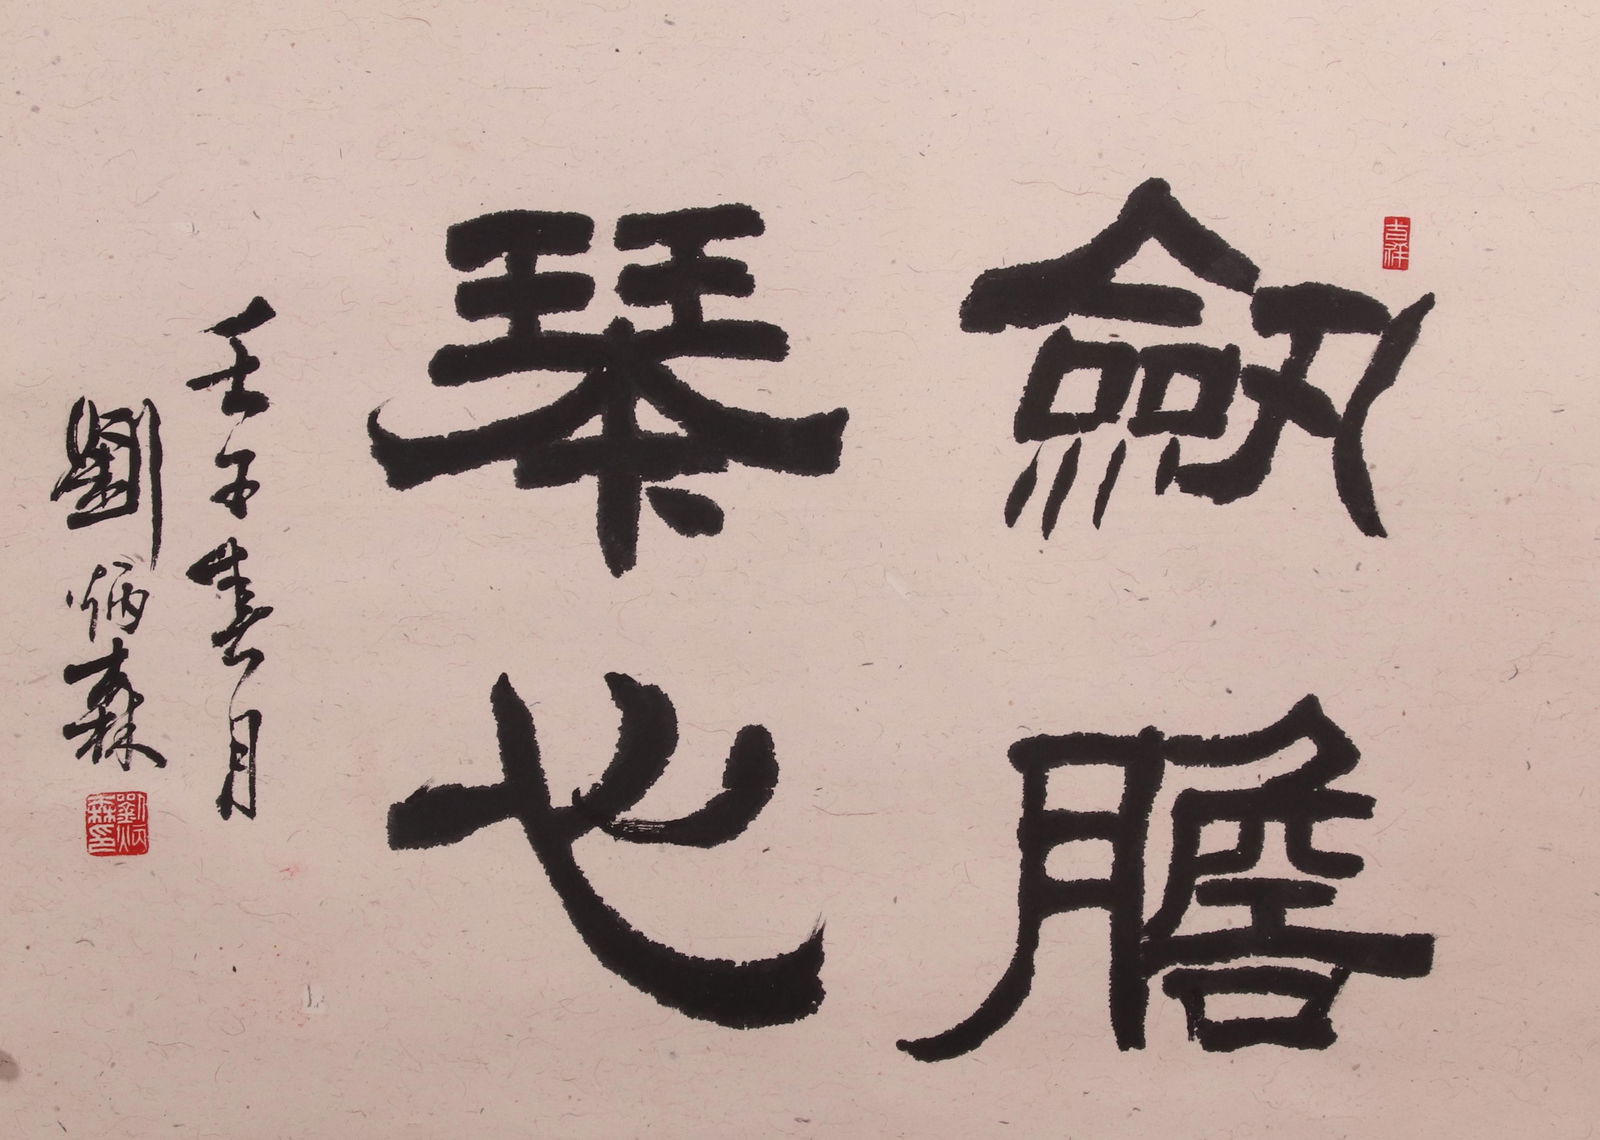 吉祥
劒膽
琴心
壬午春月
劉炳森
劉炳
森印